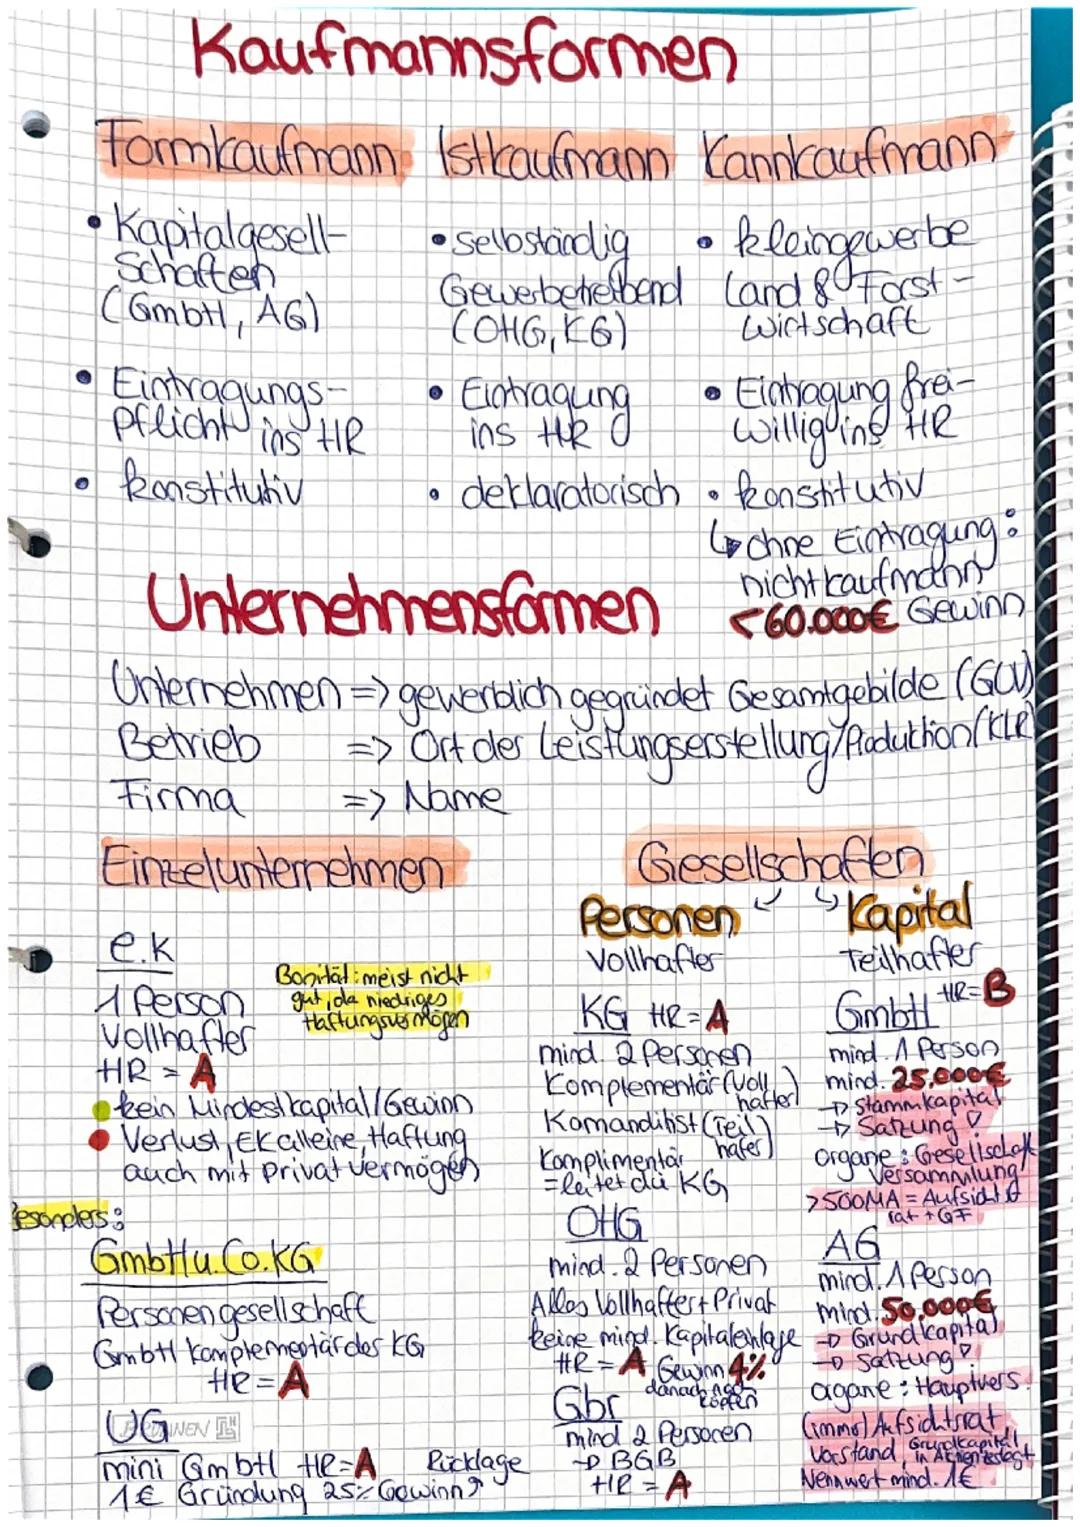 Kaufmannsformen
Formkaufmann
• Kapitalgesell-
schaften
(GmbH, AG)
• Eintragungs-
pflicht ins HR
• konstitutiv
Istkaufmann
• selbständig
Gewerbetreibend
(OHG, KG)
• Eintragung
ins HR
• deklaratorisch
Kannkaufmann
• kleingewerbe
Land & Forst-
wirtschaft
• Eintragung frei-
willig ins HR
• konstitutiv
↳ ohne Eintragung:
nichtkaufmann
<60.000€ Gewinn
Unternehmensformen
Unternehmen => gewerblich gegründet Gesamtgebilde (GUV)
Betrieb => Ort der Leistungserstellung/Produktion (KLR)
Firma => Name
Einzelunternehmen
e.k
1 Person
Vollhafter
HR = A
Bonität: meist nicht
gut, da niedriges
Haftungsvermögen
kein Mindestkapital/Gewinn
Verlust, EK alleine, Haftung
auch mit Privatvermögen
Besonders:
GmbH u. Co. KG
Personengesellschaft
GmbH Komplementär des KG
HR = A
UG
BRUNNEN
mini GmbH HR=A Rücklage
1€ Gründung 25% Gewinn
Gesellschaften
Personen
Vollhafter
KG HR = A
mind. 2 Personen
Komplementär (Voll
hafter)
Komanditist (Teil
hafer)
Komplimentär
= leitet die KG
OHG
mind. 2 Personen
Alles Vollhafter + Privat
keine mind. Kapitaleinlage
HR = A Gewinn 4%
danach nach
Köpfen
Gbr
mind 2 Personen
→ BGB
HR = A
Kapital
Teilhafter
GmbH HR = B
mind. 1 Person
mind. 25.000€
→ Stammkapital
→ Satzung
organe: Gesellschaft
Versammlung
>500MA = Aufsicht
rat + GF
AG
mind. 1 Person
mind. 50.000€
→ Grundkapital
→ Satzung
organe: Hauptvers.
(immer) Aufsichtsrat
Vorstand, Grundkapital
in Aktien zerlegt
Nennwert mind. 1€